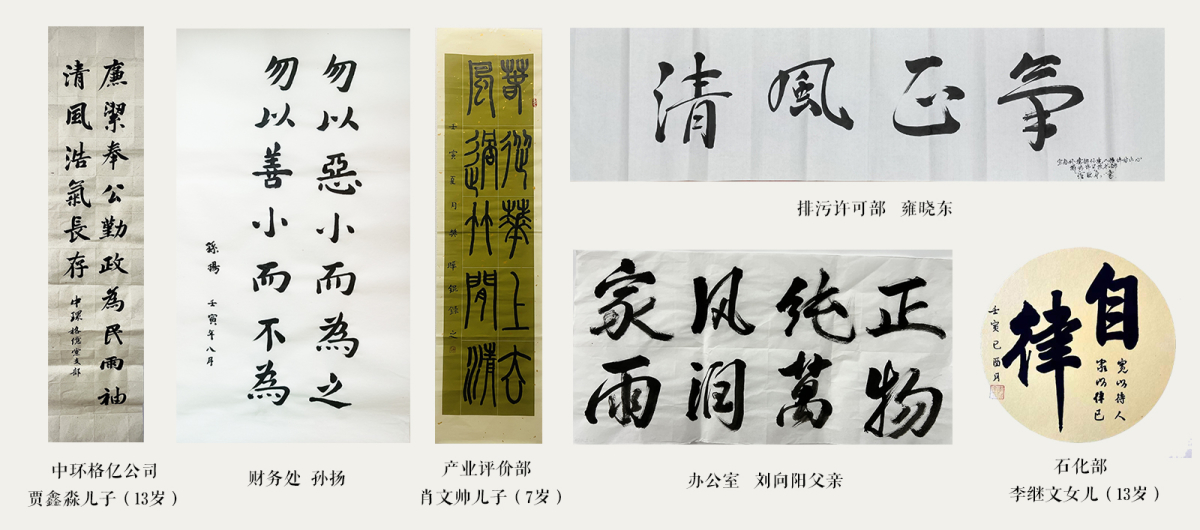 廉潔奉公勤政為民兩袖
清風浩氣長存
中環格億黨支部
中环格亿公司
贾鑫淼儿子（13岁）
勿以惡小而為之
勿以善小而不為
孫揚 壬寅年八月
财务处 孙扬
從華上去
風過竹間清
壬寅夏月
产业评价部
肖文帅儿子（7岁）
清風正氣
排污许可部 雍晓东
家风纯正
雨润萬物
办公室 刘向阳父亲
自律
寬以待人
律己
壬寅己酉月
石化部
李继文女儿（13岁）